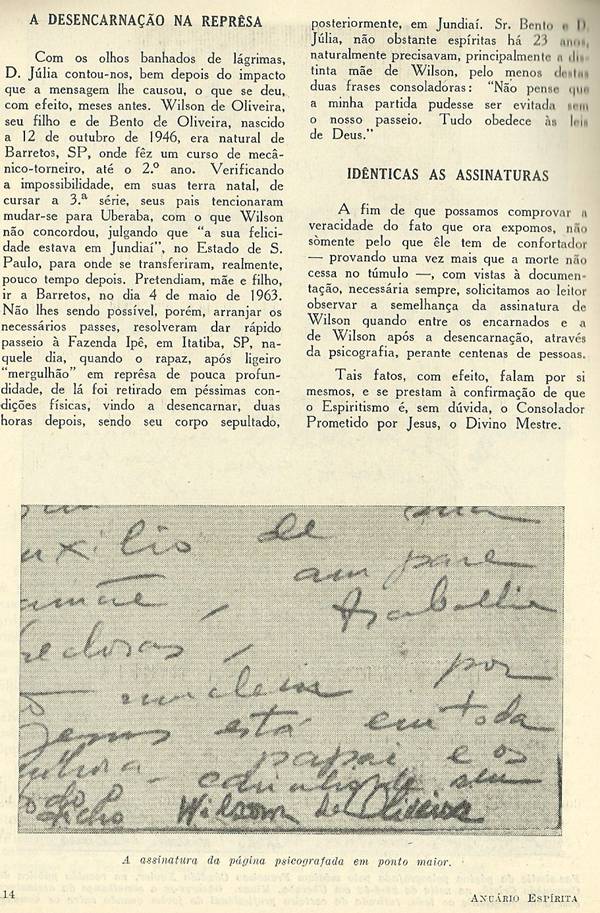 A DESENCARNAÇÃO NA REPRÊSA
Com os olhos banhados de lágrimas,
D. Júlia contou-nos, bem depois do impacto
que a mensagem lhe causou, o que se deu,
com efeito, meses antes. Wilson de Oliveira,
seu filho e de Bento de Oliveira, nascido
a 12 de outubro de 1946, era natural de
Barretos, SP, onde fêz um curso de mecâ-
nico-torneiro, até o 2.º ano. Verificando
a impossibilidade, em suas terra natal, de
cursar a 3.ª série, seus pais tencionaram
mudar-se para Uberaba, com o que Wilson
não concordou, julgando que "a sua felici-
dade estava em Jundiaí", no Estado de S.
Paulo, para onde se transferiram, realmente,
pouco tempo depois. Pretendiam, mãe e filho,
ir a Barretos, no dia 4 de maio de 1963.
Não lhes sendo possível, porém, arranjar os
necessários passes, resolveram dar rápido
passeio à Fazenda Ipê, em Itatiba, SP, na-
quele dia, quando o rapaz, após ligeiro
"mergulhão" em reprêsa de pouca profun-
didade, de lá foi retirado em péssimas con-
dições físicas, vindo a desencarnar, duas
horas depois, sendo seu corpo sepultado,
posteriormente, em Jundiaí. Sr. Bento e D.
Júlia, não obstante espíritas há 23 anos,
naturalmente precisavam, principalmente a dis-
tinta mãe de Wilson, pelo menos destas
duas frases consoladoras: "Não pense que
a minha partida pudesse ser evitada sem
o nosso passeio. Tudo obedece às leis
de Deus."
IDÊNTICAS AS ASSINATURAS
A fim de que possamos comprovar a
veracidade do fato que ora expomos, não
sòmente pelo que êle tem de confortador
— provando uma vez mais que a morte não
cessa no túmulo —, com vistas à documen-
tação, necessária sempre, solicitamos ao leitor
observar a semelhança da assinatura de
Wilson quando entre os encarnados e a
de Wilson após a desencarnação, através
da psicografia, perante centenas de pessoas.
Tais fatos, com efeito, falam por si
mesmos, e se prestam à confirmação de que
o Espiritismo é, sem dúvida, o Consolador
Prometido por Jesus, o Divino Mestre.
uxilio de
ampare
amãe, trabalho
por
Jesus está em toda
papai e os
seu
Wilson de Oliveira
A assinatura da página psicografada em ponto maior.
14
ANUÁRIO ESPÍRITA